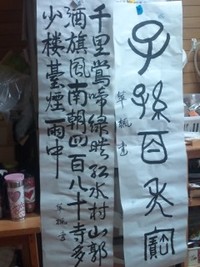 子孫百寶
書
千里鶯啼绿映红水村山郭
酒旗風南朝四百八十寺多
少楼臺煙雨中
書